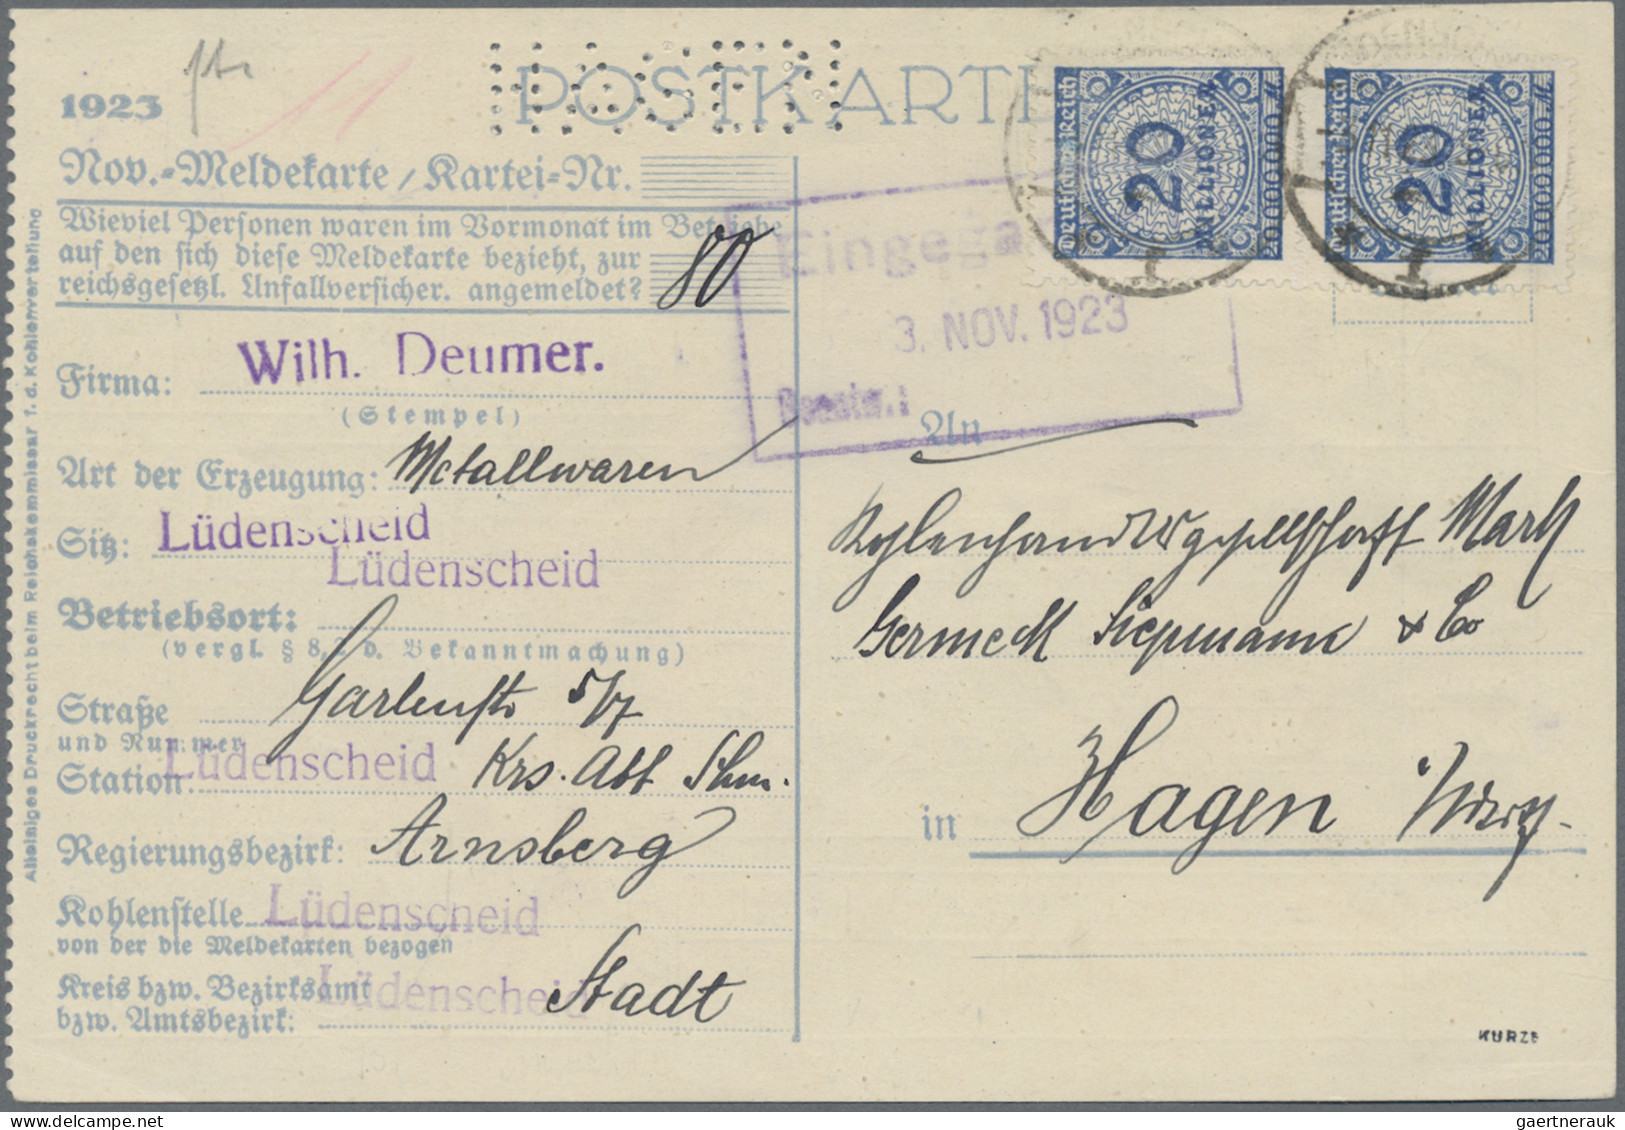 POSTKARTE
1923
Nov.-Meldekarte / Kartei-Nr.
Wieviel Personen waren im Vormonat im Betriebe
auf den sich diese Meldekarte bezieht, zur
reichsgesetzl. Unfallversicher. angemeldet? 80
Firma: Wilh. Deumer.
(Stempel)
Art der Erzeugung: Metallwaren
Sitz: Lüdenscheid
Lüdenscheid
Betriebsort:
(vergl. § 8, 2 d. Bekanntmachung)
Straße Gartenstr 5/7
und Nummer
Station Lüdenscheid Krs. Alt
Regierungsbezirk: Arnsberg
Kohlenstelle Lüdenscheid
von der die Meldekarten bezogen
Kreis bzw. Bezirksamt Lüdenscheid Stadt
bzw. Amtsbezirk:
Alleiniges Druckrecht beim Reichskommissar f. d. Kohlenverteilung
Deutsches Reich
20
MILLIONEN
20000000 M
Deutsches Reich
20
MILLIONEN
20000000 M
Eingega
3. NOV. 1923
Beantw.:
An
Kohlenhandelsgesellschaft Mark
Siepmann & Co
in Hagen
KURZE
gaertnerauk